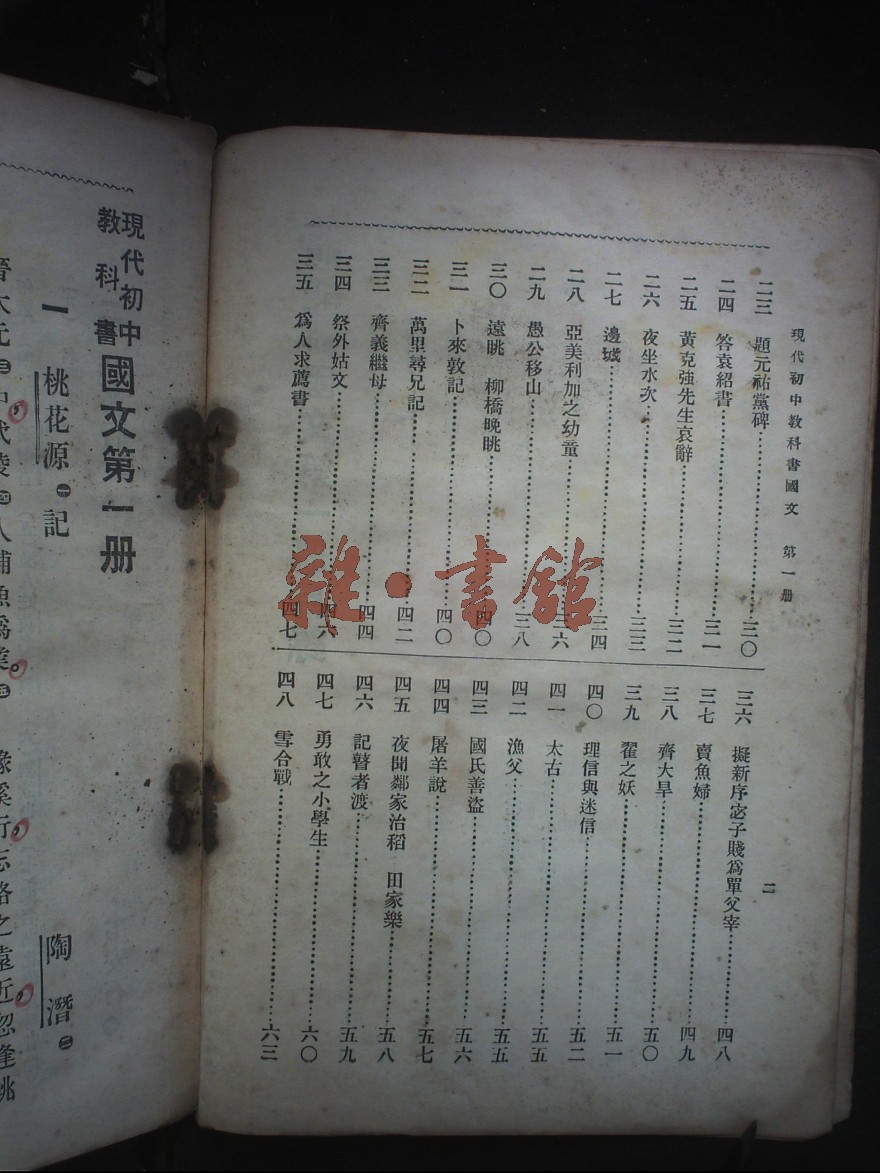 現代初中教科書國文 第一册
二
二三 題元祐黨碑……三〇
二四 答袁紹書……三一
二五 黃克強先生哀辭……三二
二六 夜坐水次……三三
二七 邊城……三四
二八 亞美利加之幼童……三六
二九 愚公移山……三八
三〇 遠眺 柳橋晚眺……四〇
三一 卜來敦記……四〇
三二 萬里尋兄記……四二
三三 齊義繼母……四四
三四 祭外姑文……四六
三五 爲人求薦書……四七
三六 擬新序宓子賤爲單父宰……四八
三七 賣魚婦……四九
三八 齊大旱……五〇
三九 翟之妖……五一
四〇 理信與迷信……五二
四一 太古……五五
四二 漁父……五五
四三 國氏善盜……五六
四四 屠羊說……五七
四五 夜聞鄰家治稻 田家樂……五八
四六 記瞽者渡……五九
四七 勇敢之小學生……六〇
四八 雪合戰……六三
雜·書館
現代初中教科書國文第一册
一 桃花源㊀記 陶潛㊁
晉太元㊂中武陵㊃人捕魚爲業。㊄ 緣溪行,忘路之遠近,忽逢桃